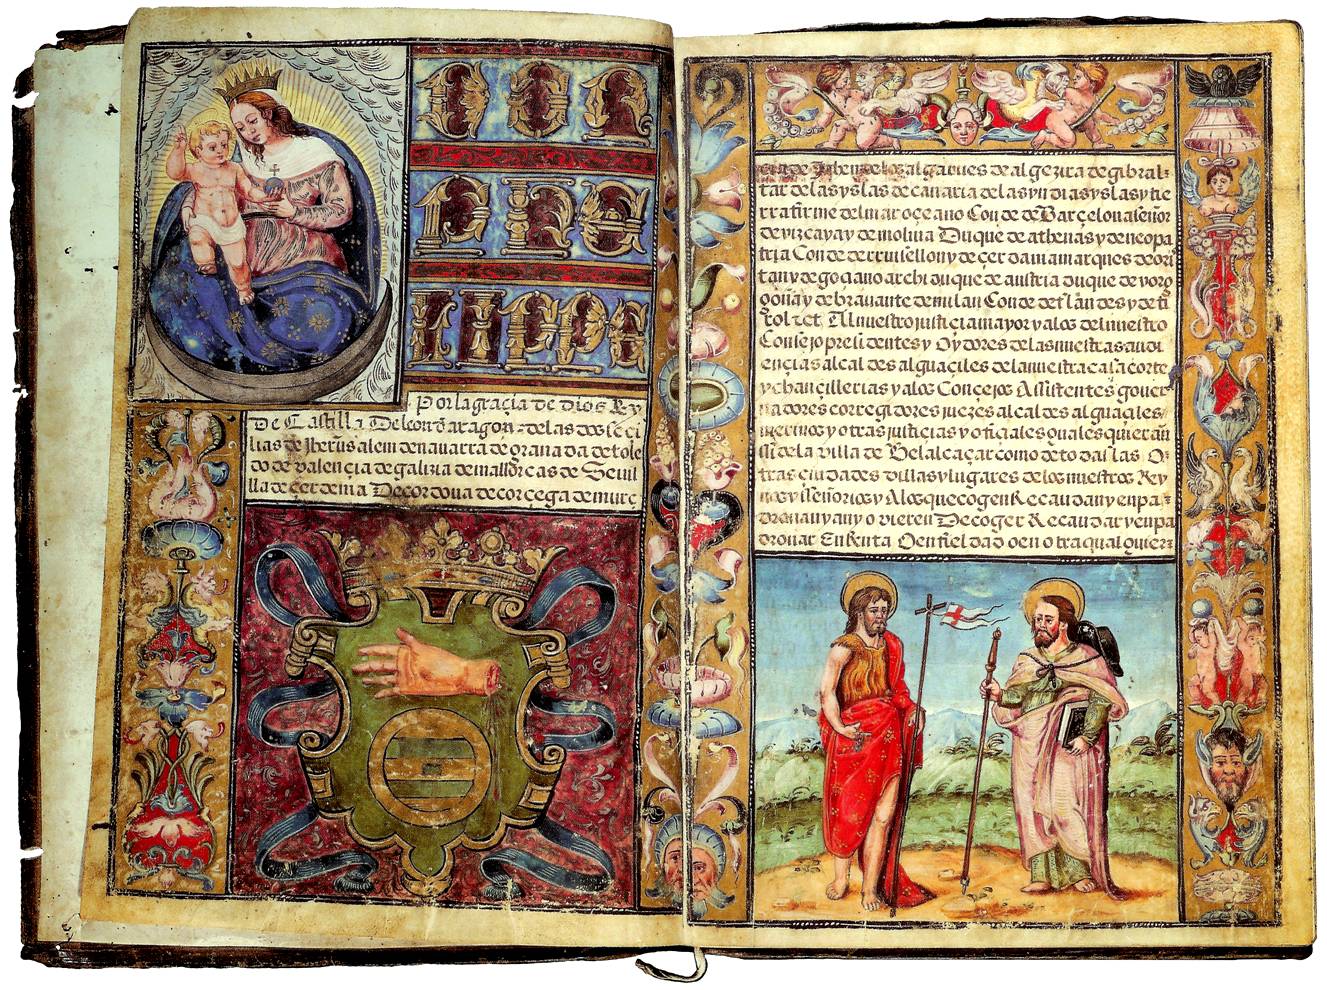 Por la graçia de dios Rey
De Castilla De leon de aragon de las dos seçi
lias de Jherusalem de navarra de granada de tole
do de valençia de galizia de mallorcas de Sevil
lla de çerdenia De cordova de corçega de murc
de los algarves de algezira de gibral
tar de las yslas de canaria de las yndias yslas y tie
rra firme del mar oçeano Conde de Barçelona señor
de vizcaya y de molina Duque de athenas y de neopa
tria Conde de rruisellon y de çerdania marques de ori
tan y de goçiano archiduque de austria duque de vorg
goña y de bravante de milan Conde de flandes y de ti
rol etc Al nuestro justiçia mayor y a los del nuestro
Consejo presidentes y Oydores de las nuestras audi
ençias alcaldes alguaçiles de la nuestra casa corte
y chançillerias y a los Conçejos Assistentes gover
nadores corregidores juezes alcaldes alguaçiles
merinos y otras justiçias y ofiçiales quales quier an
si de la villa de Belalcaçar como de todas las O
tras ciudades villas y lugares de los nuestros Rey
nos y señorios y A los que cogen Recaudan y enpa
dronan y an y ovieren De coger Recaudar y enpa
dronar En Renta O en fieldad o en otra qualquier